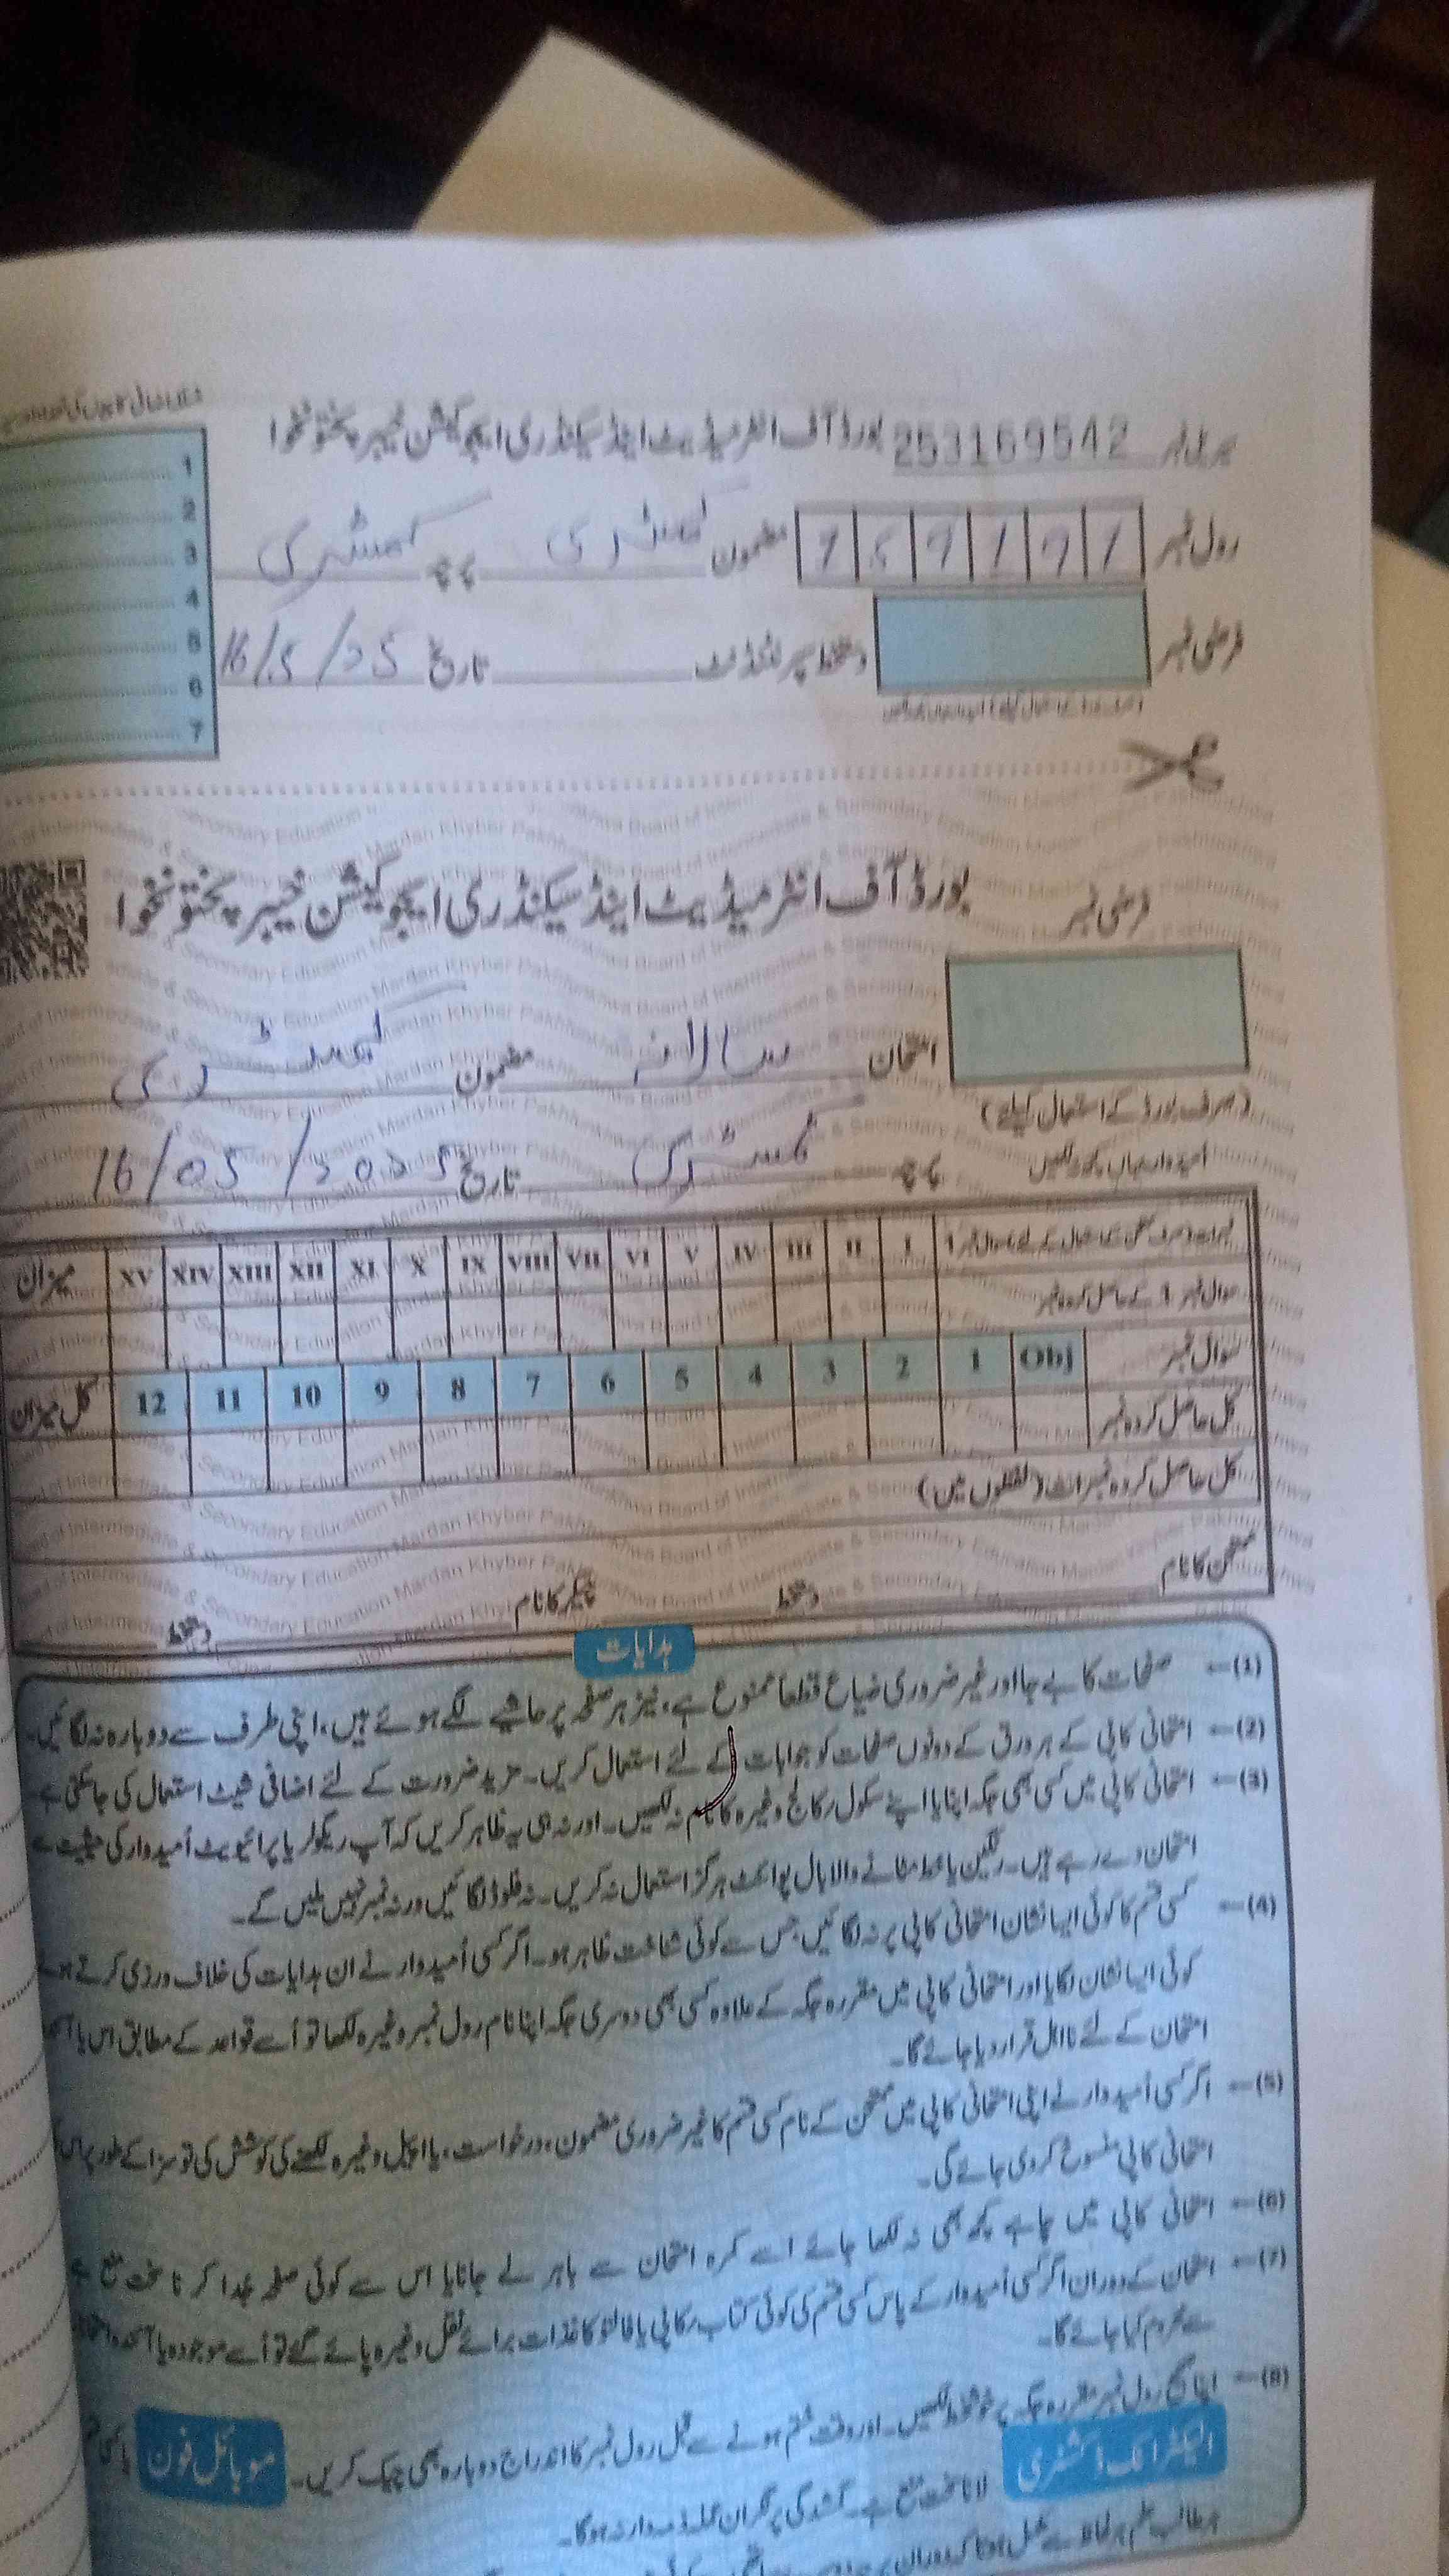 سیریل نمبر 253169542 بورڈ آف انٹرمیڈیٹ اینڈ سیکنڈری ایجوکیشن خیبر پختونخوا
رول نمبر مضمون کیمسٹری پرچہ کیمسٹری
فرضی نمبر دستخط سپرنٹنڈنٹ تاریخ 16/5/25
1
2
3
4
5
6
7
فرضی نمبر بورڈ آف انٹرمیڈیٹ اینڈ سیکنڈری ایجوکیشن خیبر پختونخوا
امتحان سالانہ مضمون کیمسٹری
(صرف بورڈ کے استعمال کیلئے)
امیدوار یہاں کچھ نہ لکھیں پرچہ کیمسٹری تاریخ 16/05/2025
I II III IV V VI VII VIII IX X XI XII XIII XIV XV میزان
سوال نمبر 1 کے حاصل کردہ نمبر
سوال نمبر Obj 1 2 3 4 5 6 7 8 9 10 11 12 کل میزان
کل حاصل کردہ نمبر
کل حاصل کردہ نمبرات (لفظوں میں)
ممتحن کا نام دستخط چیکر کا نام دستخط
ہدایات
(1)– صفحات کا بے جا اور غیر ضروری ضیاع قطعاً ممنوع ہے، نیز ہر صفحہ پر حاشیے لگے ہوئے ہیں، اپنی طرف سے دوبارہ نہ لگائیں۔
(2)– امتحانی کاپی کے ہر ورق کے دونوں صفحات کو جوابات کے لئے استعمال کریں۔ مزید ضرورت کے لئے اضافی شیٹ استعمال کی جاسکتی ہے
(3)– امتحانی کاپی میں کسی بھی جگہ اپنا یا اپنے سکول / کالج وغیرہ کا نام نہ لکھیں۔ اور نہ ہی یہ ظاہر کریں کہ آپ ریگولر یا پرائیویٹ اُمیدوار کی حیثیت سے
امتحان دے رہے ہیں۔ رنگین یا خط مٹانے والا بال پوائنٹ ہرگز استعمال نہ کریں۔ نہ فلوڈ لگائیں ورنہ نمبر نہیں ملیں گے۔
(4)– کسی قسم کا کوئی ایسا نشان امتحانی کاپی پر نہ لگائیں، جس سے کوئی شناخت ظاہر ہو۔ اگر کسی اُمیدوار نے ان ہدایات کی خلاف ورزی کرتے ہوئے
کوئی ایسا نشان لگایا اور امتحانی کاپی میں مقررہ جگہ کے علاوہ کسی بھی دوسری جگہ اپنا نام رول نمبر وغیرہ لکھا تو اُسے قواعد کے مطابق اس یا
امتحان کے لئے نااہل قرار دیا جائے گا۔
(5)– اگر کسی اُمیدوار نے اپنی امتحانی کاپی میں ممتحن کے نام کسی قسم کا غیر ضروری مضمون، درخواست، یا اپیل وغیرہ لکھنے کی کوشش کی تو سزا کے طور پر اس
امتحانی کاپی منسوخ کردی جائے گی۔
(6)– امتحانی کاپی میں چاہے کچھ بھی نہ لکھا جائے اسے کمرہ امتحان سے باہر لے جانا یا اس سے کوئی صفحہ جُدا کرنا سخت منع ہے
(7)– امتحان کے دوران اگر کسی اُمیدوار کے پاس کسی قسم کی کوئی کتاب / کاپی یا فالتو کاغذات برائے نقل وغیرہ پائے گئے تو اُسے موجودہ یا آئندہ
سے محروم کیا جائے گا۔
(8)– اپنا صحیح رول نمبر مقررہ جگہ پر خوشخط لکھیں۔ اور وقت ختم ہونے سے قبل رول نمبر کا اندراج دوبارہ بھی چیک کریں۔ موبائل فون یا کسی
الیکٹرانک ڈکشنری لانا سخت منع ہے۔ گمشدگی پر نگران عملہ ذمہ دار نہ ہوگا۔